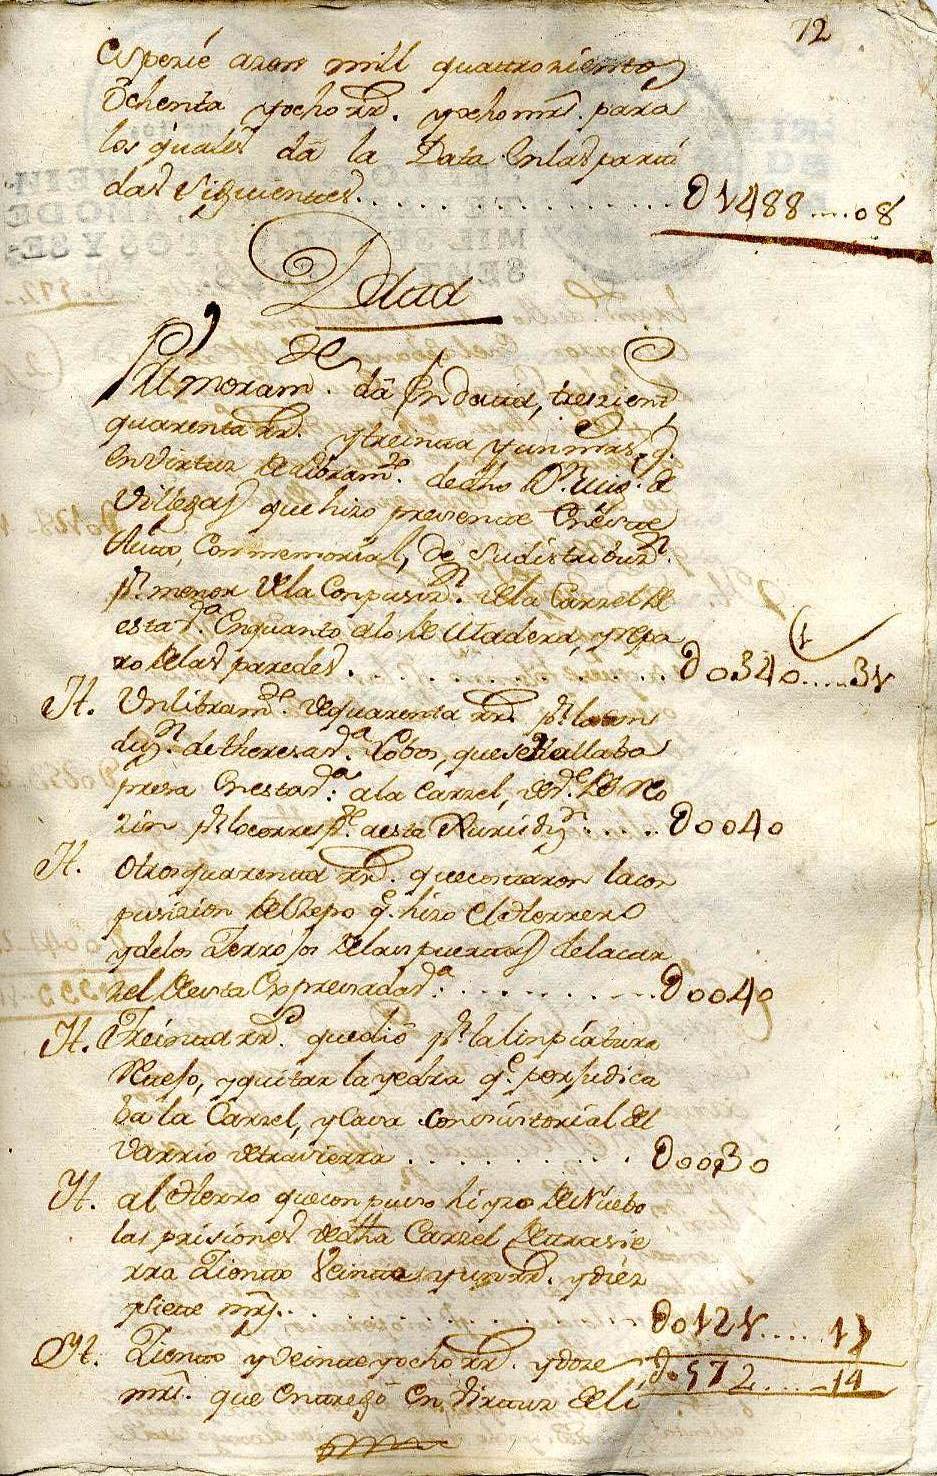 72
Especie azen mill quattrozientos
Ochenta yocho rr.s yocho mrs. para
los quales da la Data en las parti
das Siguientes . . . . . . . . . . . D1488....08
Data
Primeram.te da En data, trezientos
quarenta rr.s y treinta y un mrs. q.e
en virtud de libram.to de dho Dn. Luis de
Villegas que hizo presente En este
Aiun.to Con memorial, de Su distribuz.n
p.r menor de la Conpusiz.n de la Carzel de
esta v.a En quanto a lo de Madera, y repa
ro de las paredes . . . . . . . . . . D0340....31
(1
It. Un libram.to de quarenta rr.s p.r la con
duz.n de theresa Cobos, que se hallaba
presa En esta v.a a la Carzel, de
p.r lo corresp.te a esta Jurisdiz.n . . . . . D0040
It. Otros quarenta rr.s que costaron la con
pusizion del Zepo q.e hizo el Herrero
y de los Zerrojos de las puertas de la car
zel de esta Expresada v.a . . . . . . . . D0040
It. Treinta rr.s que dio p.r la linpia tura
Rueso, y quitar la yedra q.e perjudica
ba la Carzel, y Casa Consistorial del
Varrio de trasierra . . . . . . . . D0030
It. al Herro que con puso hizo de Nuebo
las prisiones de dha Carzel de trasie
rra Ziento Veinte y un rr.s y diez
y siete mrs. . . . . . . . . . . . . D0121.....17
It. Ziento y Veinte y ocho rr.s y doze D.572......14
mrs. que Entregò En Virtud de li